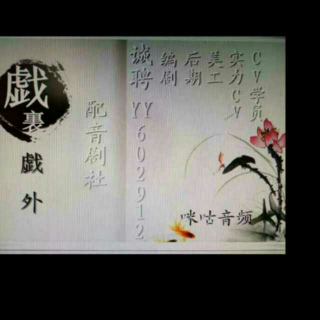 戯裏戯外
配音剧社
诚聘YY602912
编剧
后期
美工
实力CV
CV学员
咪咕音频